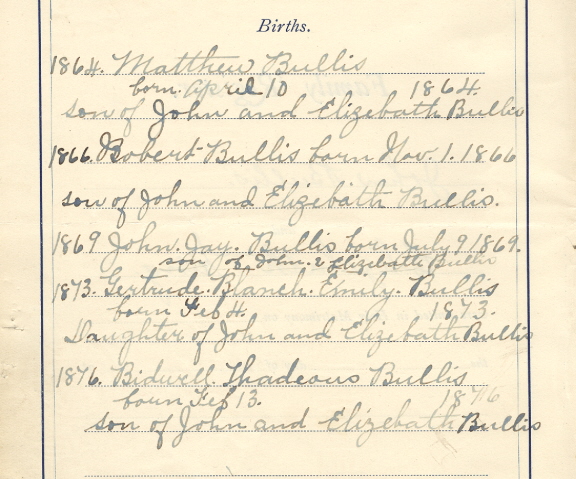 Births.
1864. Matthew Bullis
born. April 10 1864.
son of John and Elizebath Bullis
1866. Robert Bullis born Nov. 1. 1866
son of John and Elizebath Bullis.
1869 John. Jay. Bullis born July 9 1869.
son of John. & Elizebath Bullis
1873. Gertrude. Blanch. Emily. Bullis
born Feb 4. 1873.
Daughter of John and Elizebath Bullis
1876. Bidwell. Thadeous Bullis
born Feb 13. 1876
son of John and Elizebath Bullis